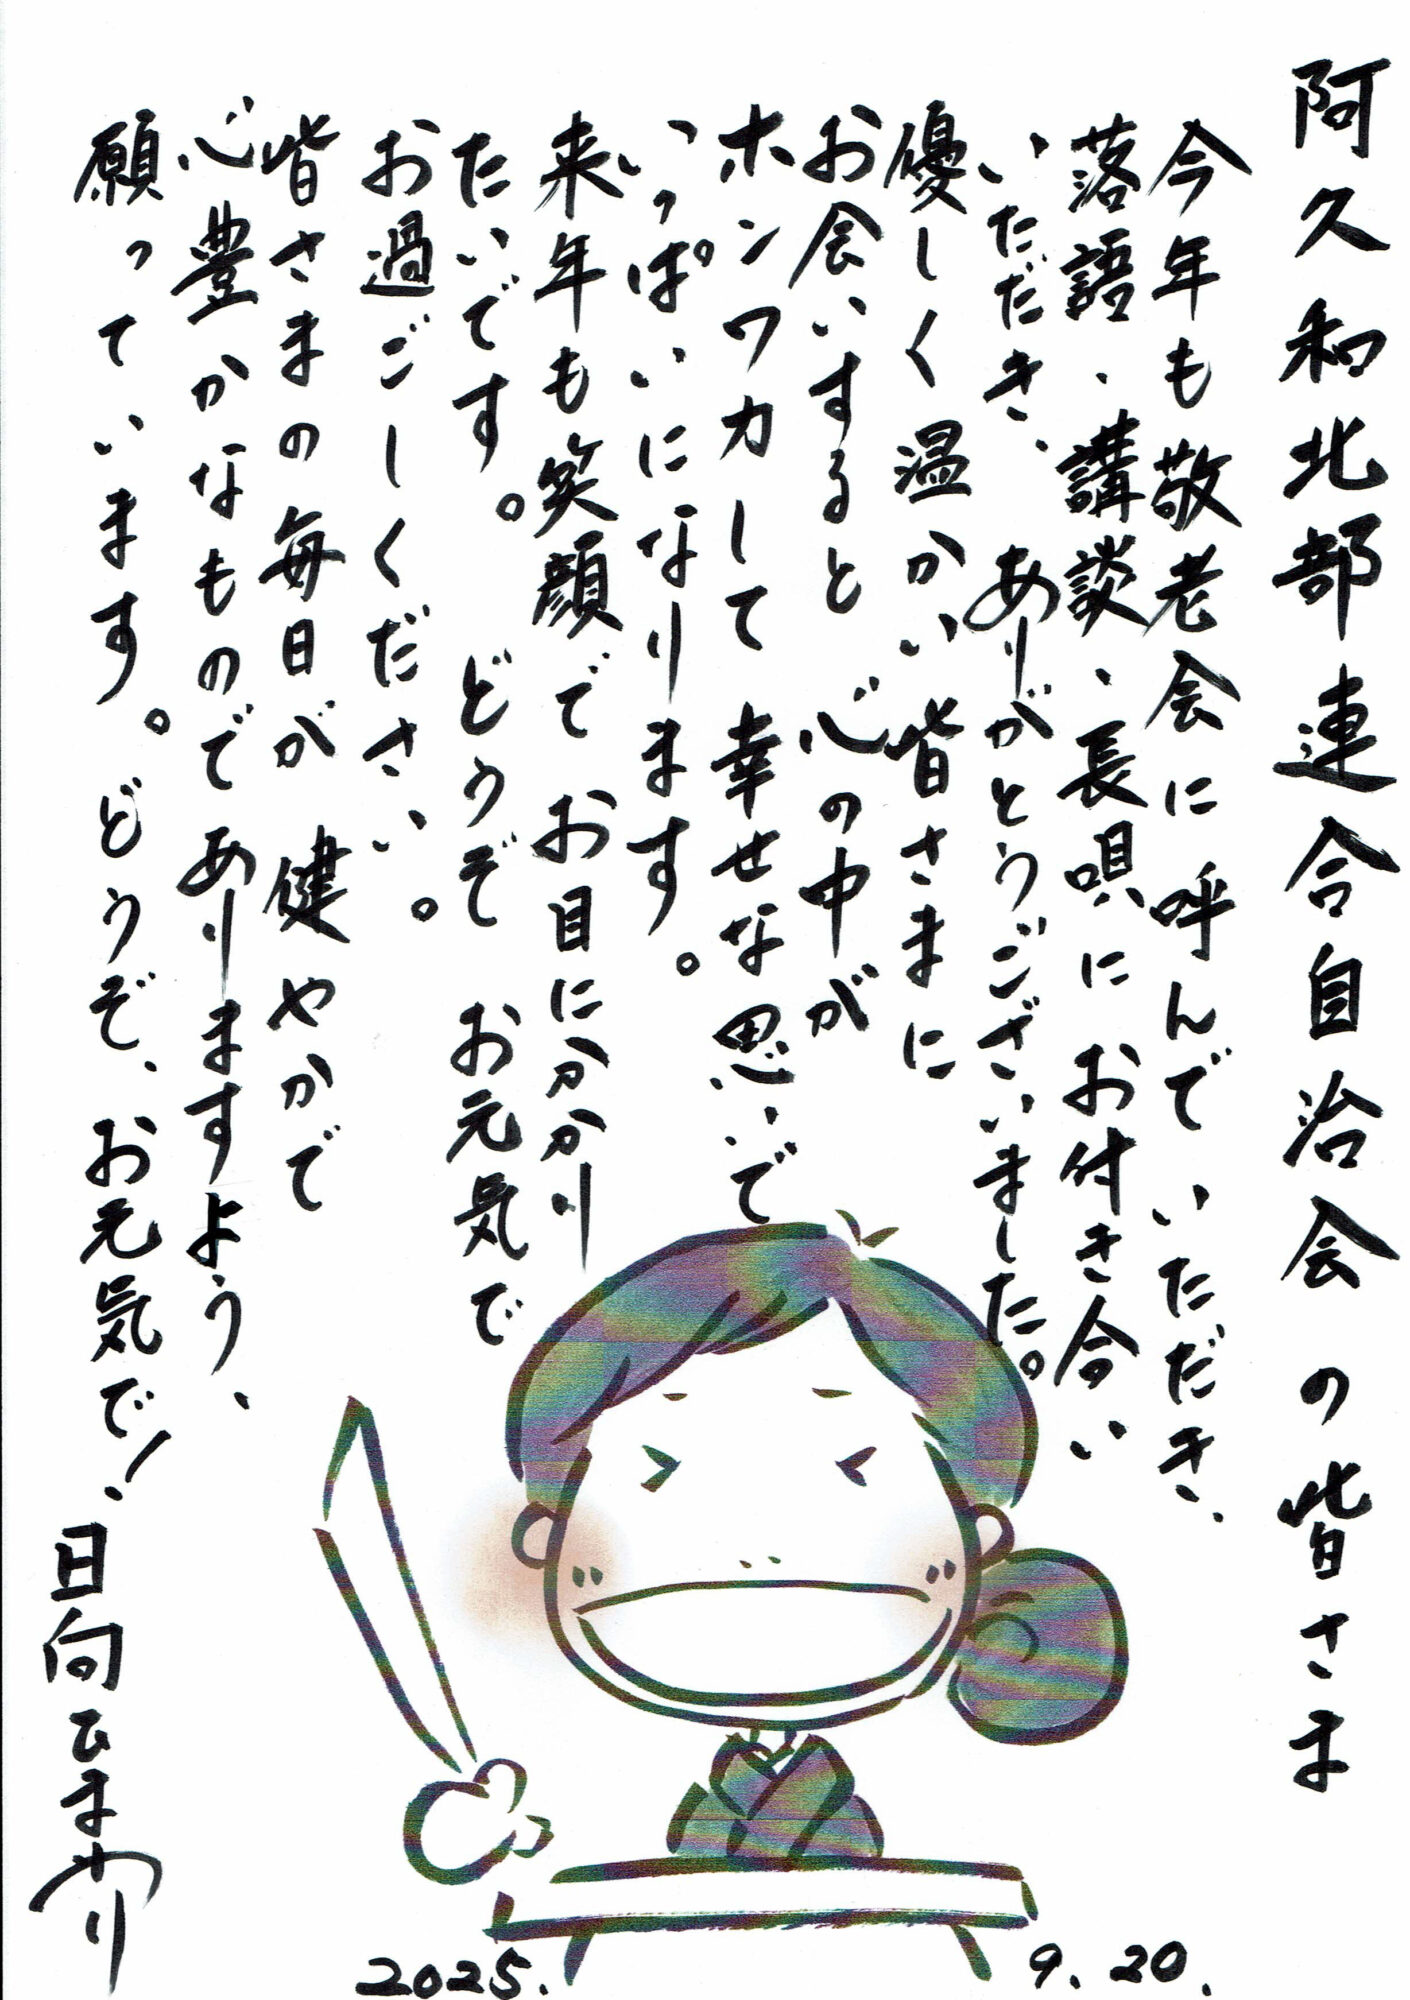 阿久和北部連合自治会の皆さま
今年も敬老会に呼んでいただき、
落語・講談、長唄にお付き合い
いただき、ありがとうございました。
優しく温かい皆さまに
お会いすると心の中が
ホンワカして幸せな思いで
いっぱいになります。
来年も笑顔でお目に分かり
たいです。どうぞお元気で
お過ごしください。
皆さまの毎日が健やかで
心豊かなものでありますよう、
願っています。どうぞ、お元気で！
日向ひまわり
2025. 9. 20.